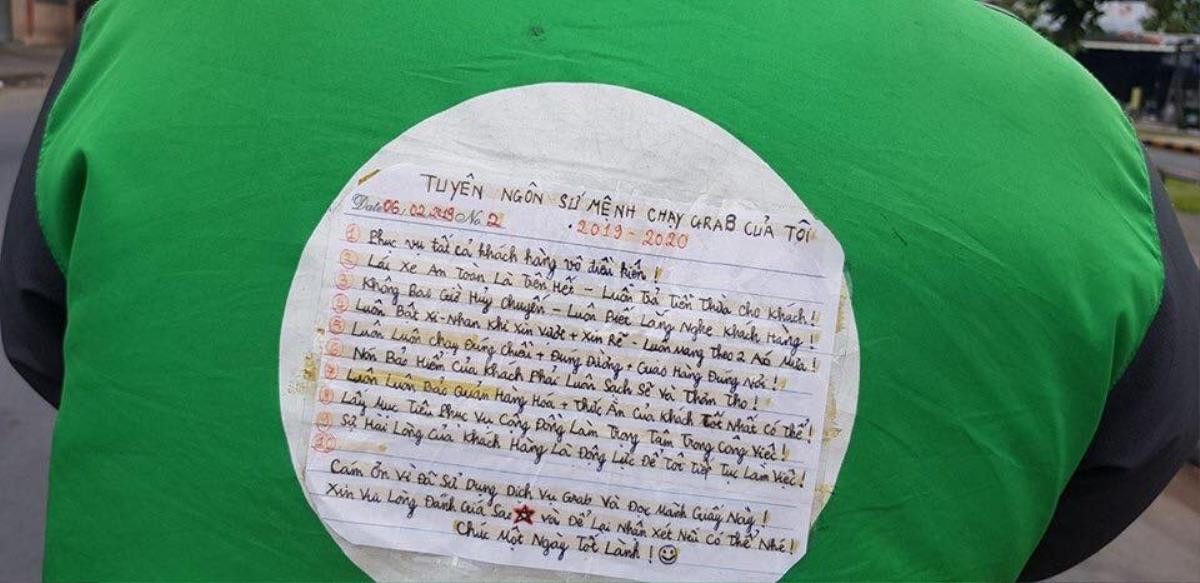 TUYÊN NGÔN SỨ MỆNH CHẠY GRAB CỦA TÔI
Date 06/02.2019 No. 2
2019 - 2020
① Phục vụ tất cả khách hàng vô điều kiện !
② Lái Xe An Toàn Là Trên Hết - Luôn Trả Tiền Thừa Cho Khách !
③ Không Bao Giờ Hủy Chuyến - Luôn Biết Lắng Nghe Khách Hàng !
④ Luôn Bật Xi-Nhan Khi Xin Vượt + Xin Rẽ - Luôn Mang Theo 2 Áo Mưa !
⑤ Luôn Luôn Chạy Đúng Chiều + Đúng Đường + Giao Hàng Đúng Nơi !
⑥ Nón Bảo Hiểm Của Khách Phải Luôn Sạch Sẽ Và Thơm Tho !
⑦ Luôn Luôn Bảo Quản Hàng Hoá + Thức Ăn Của Khách Tốt Nhất Có Thể !
⑧ Lấy Mục Tiêu Phục Vụ Cộng Đồng Làm Trọng Tâm Trong Công Việc !
⑨ Sự Hài Lòng Của Khách Hàng Là Động Lực Để Tôi Tiếp Tục Làm Việc !
⑩
Cảm Ơn Vì Đã Sử Dụng Dịch Vụ Grab Và Đọc Mảnh Giấy Này !
Xin Vui Lòng Đánh Giá Sao và Để Lại Nhận Xét Nếu Có Thể Nhé !
Chúc Một Ngày Tốt Lành !